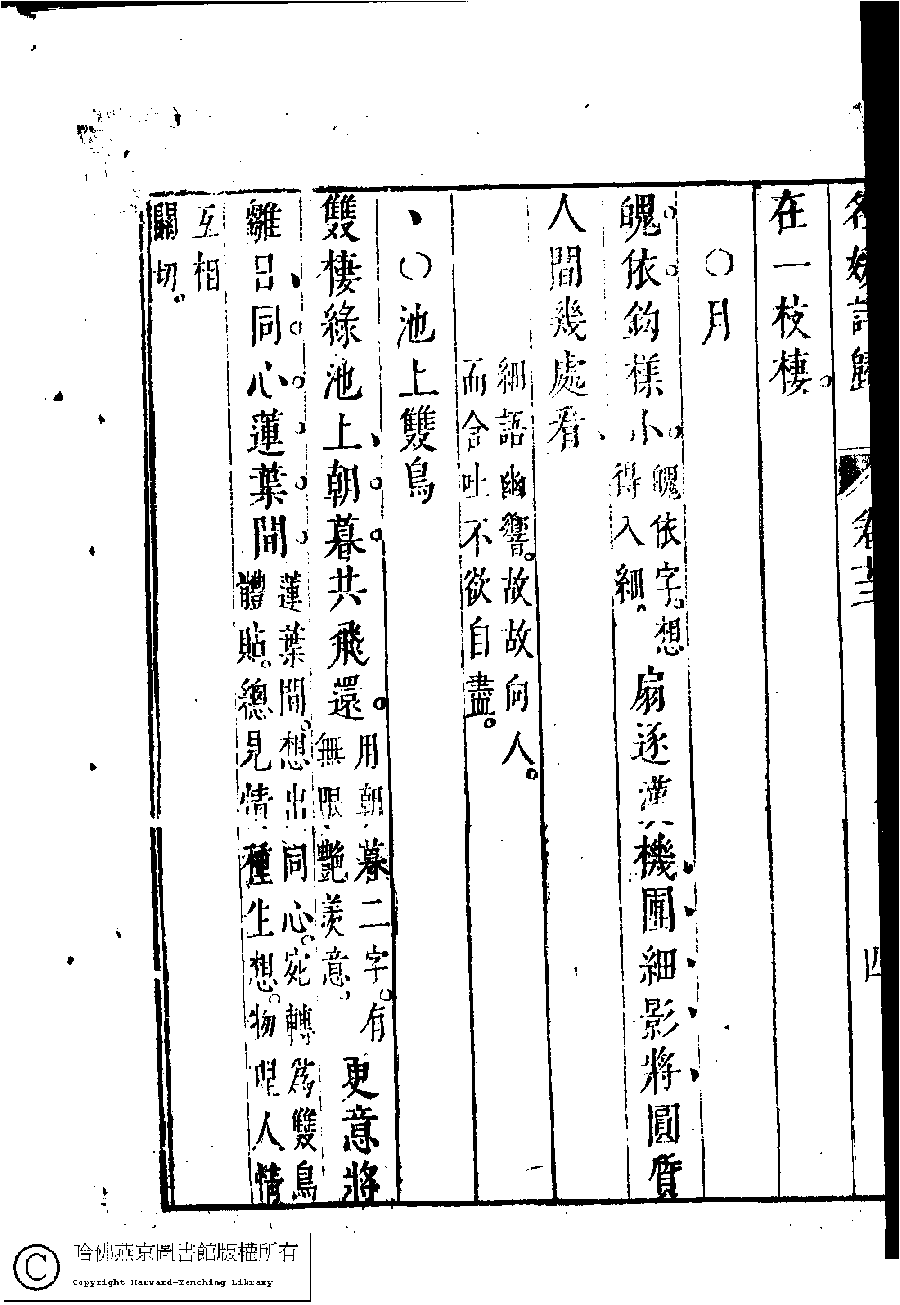 名媛詩歸 卷十三 四
在一枝棲。
〇月
魄依鈎樣小
魄依字。想
得入細。
扇逐漢機團細影將圓質
人間幾處看
細語幽響。故故向人。
而含吐不欲自盡。
〇池上雙鳥
雙棲綠池上朝暮共飛還。
用朝暮二字。有
無限艷羨意。
更意將
雛日同心蓮葉間
蓮葉間。想出同心。宛轉為雙鳥
體貼。總見情種生想。物理人情
互相
關切。
哈佛燕京圖書館版權所有
Copyright Harvard-Yenching Library